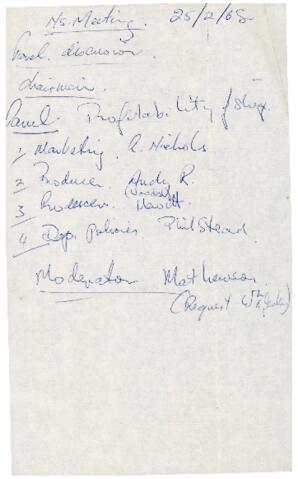 Ms. Meeting. 25/2/68
Panel discussion.
Chairman.
Panel. Profitability of Shop.
1, Marketing. A. Nichols
2 Producer. Andy R.
3 Producer. Hewitt.
4 Dep. policies Phil Stead
Moderator Mathewson
(Request